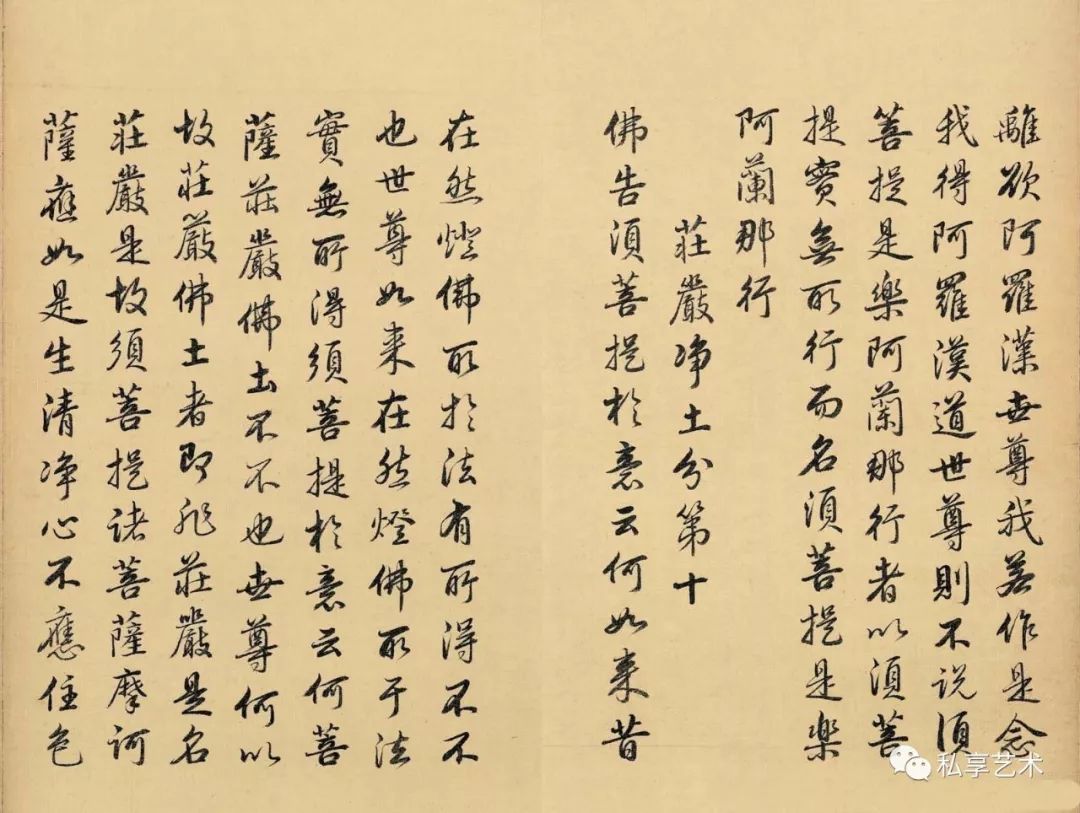 離欲阿羅漢世尊我若作是念
我得阿羅漢道世尊則不說須
菩提是樂阿蘭那行者以須菩
提實無所行而名須菩提是樂
阿蘭那行
莊嚴淨土分第十
佛告須菩提於意云何如来昔
在然燈佛所於法有所得不不
也世尊如来在然燈佛所于法
實無所得須菩提於意云何菩
薩莊嚴佛土不不也世尊何以
故莊嚴佛土者即非莊嚴是名
莊嚴是故須菩提諸菩薩摩訶
薩應如是生清淨心不應住色
私享艺术